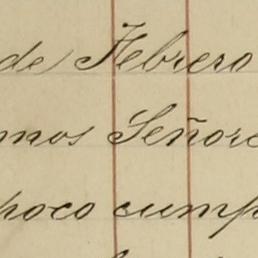 de Febrero
mos Señore
poco cump